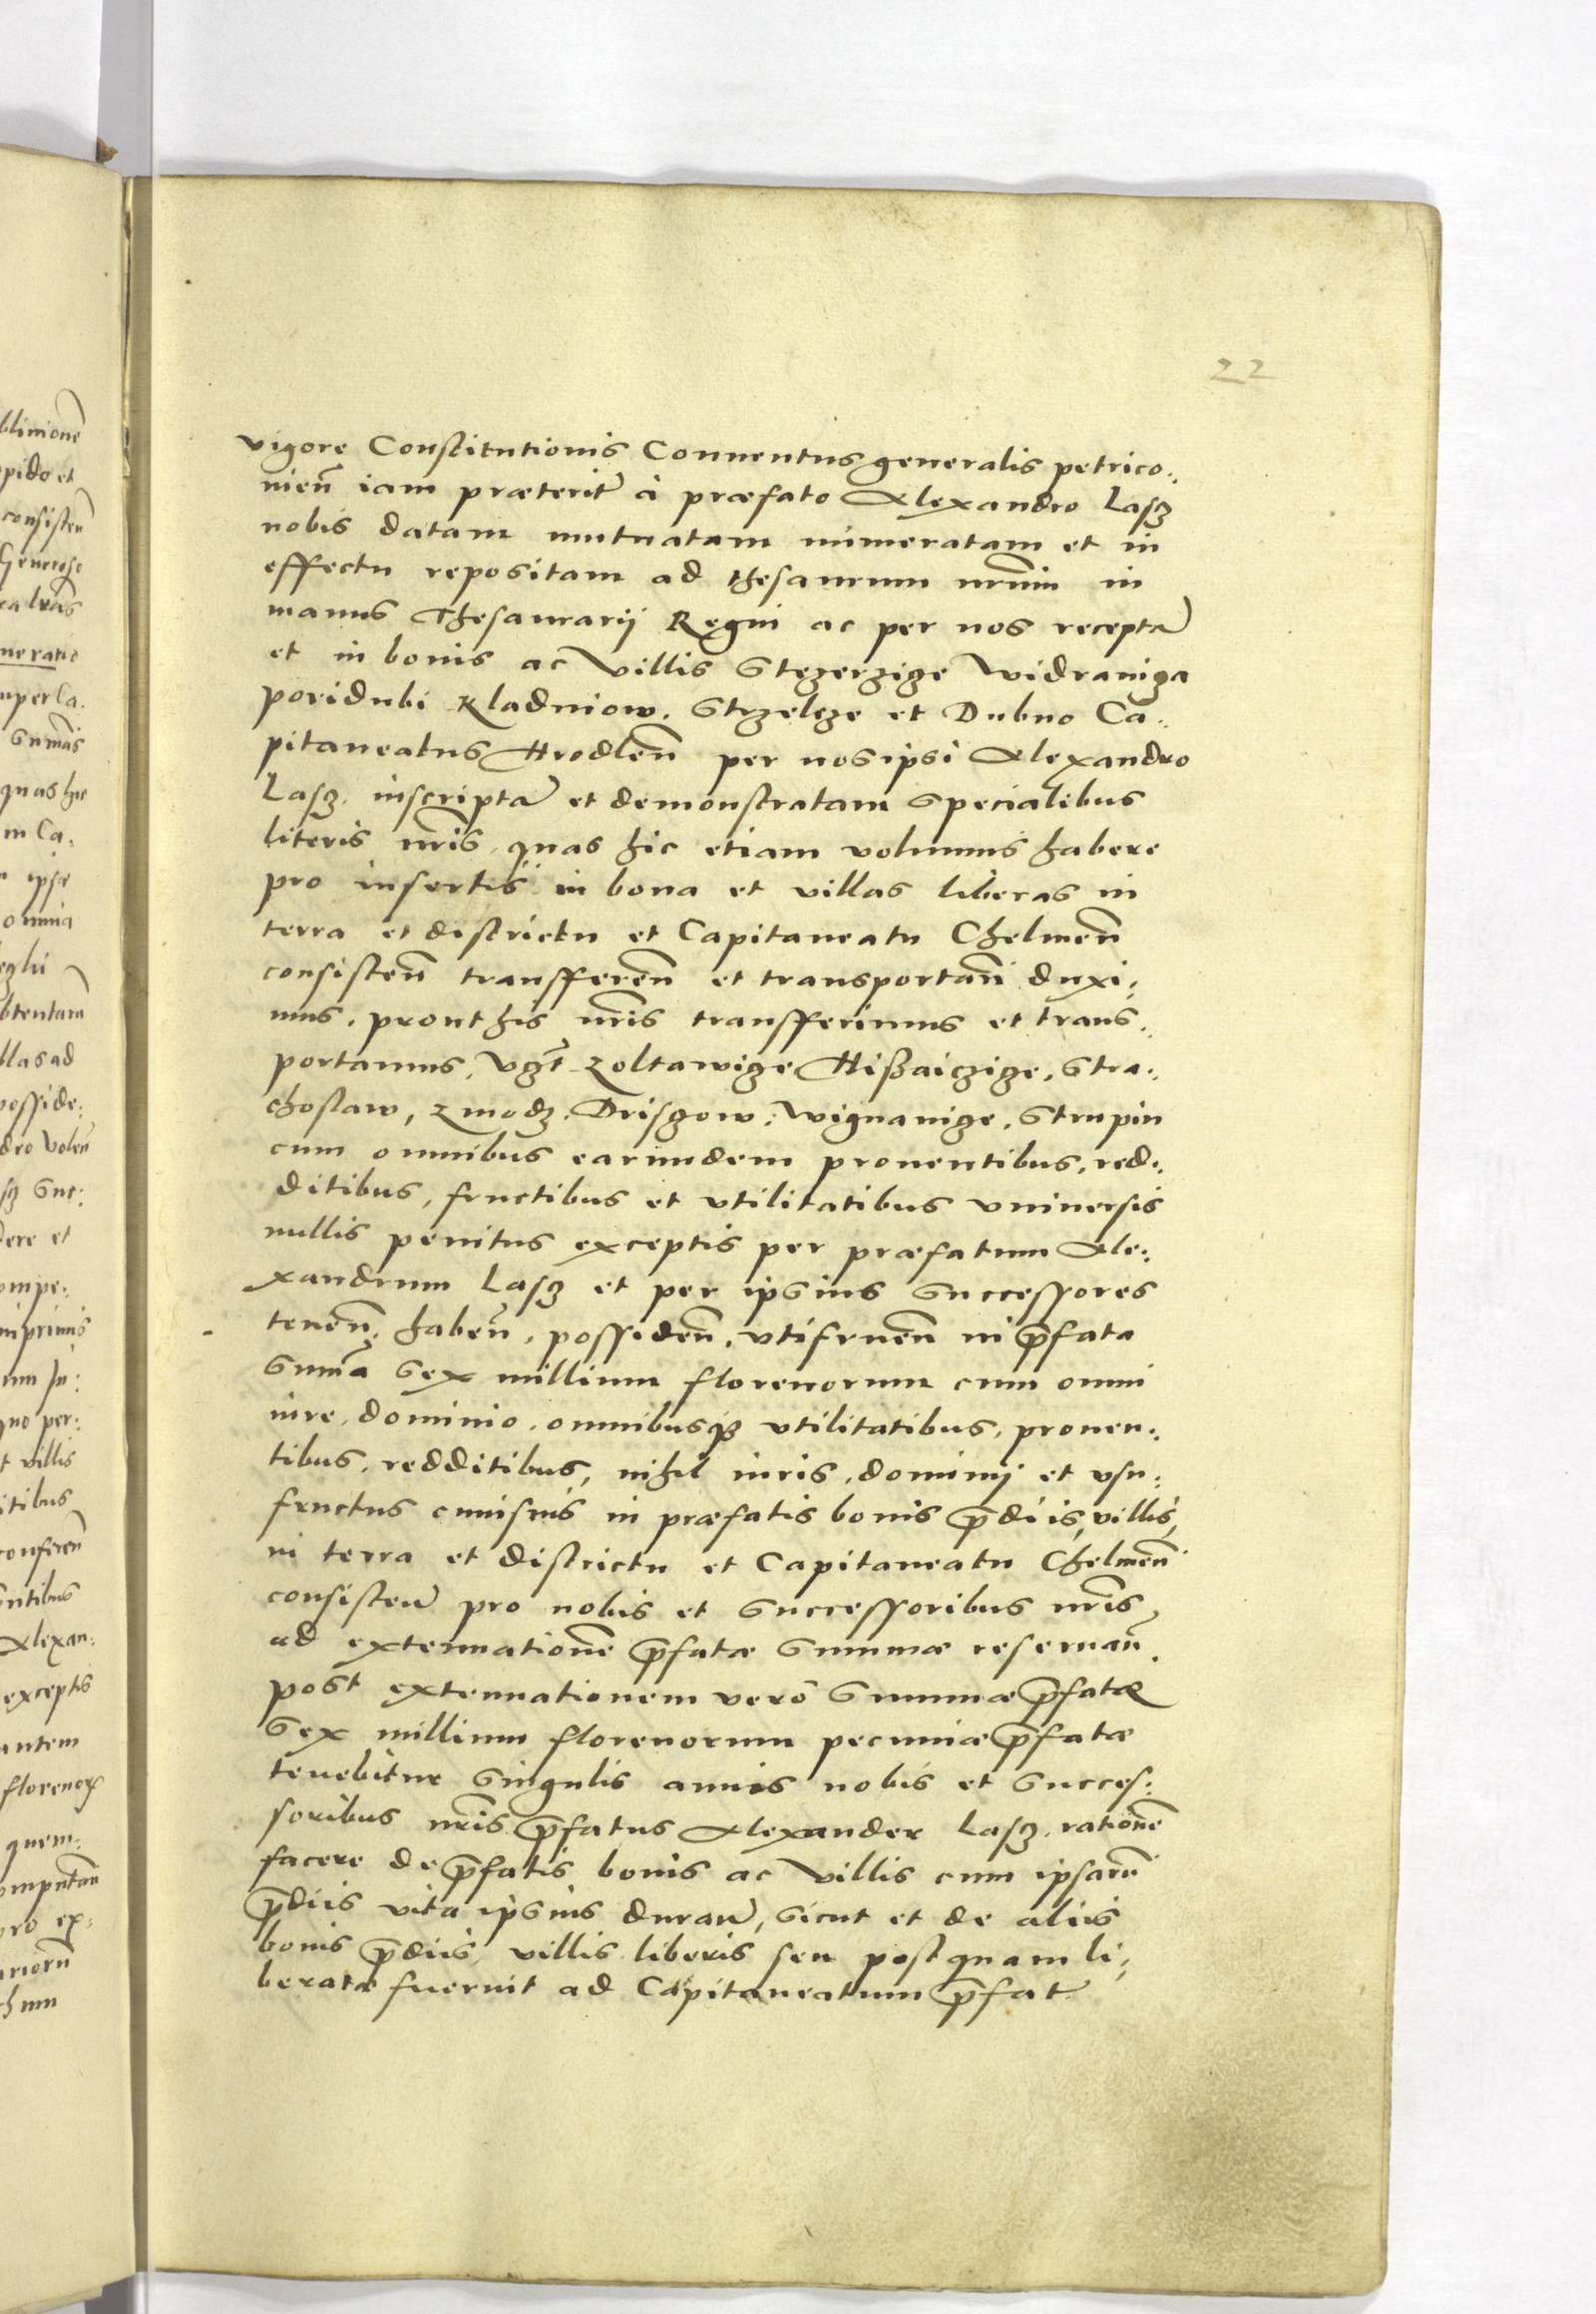 22
vigore Constitutionis Conuentus generalis petrico:
nien̄ iam præterit̄ à præfato Alexandro Lasch
nobis datam mutuatam numeratam et in
effectu repositam ad thesaurum nr̄um in
manus Thesaurarij Regni ac per nos recepta̅
et in bonis ac villis Stezerzicze Widranicza
poridubi Kladniow. Strzelcze et Dubno Ca:
pitaneatus Hrodlen̄ per nos ipsi Alexandro
Lasch. inscripta̅ et demonstratam specialibus
literis nr̄is, quas hic etiam volumus habere
pro insertis in bona et villas liberas in
terra et districtu et Capitaneatu Chelmen̄
consisten̄ transferen̄ et transportan̄ duxi:
mus. prout his nr̄is transferimus et trans:
portamus, vgt̄ Zoltawicze Hißaiczicze, Stra:
choslaw, Zmodz, Drisczow, Wignanicze, Strupin
cum omnibus earundem prouentibus, red:
ditibus, fructibus et vtilitatibus vniuersis
nullis penitus exceptis per præfatum Ale:
xandrum Lasch et per ipsius successores
tenen̄, haben̄, possiden̄, vtifruen̄ in p̄fata
sum̄a sex millium florenorum cum omni
iure, dominio, omnibusq̨ vtilitatibus, prouen:
tibus, redditibus, nihil iuris, dominij et vsu:
fructus cuiusuis in præfatis bonis p̄diis, villis,
in terra et districtu et Capitaneatu Chelmen̄
consisten̄ pro nobis et successoribus nr̄is
ad extenuatione̅ p̄fatæ summæ reseruan̄.
post extenuationem verò summæ p̄fatæ
sex millium florenorum pecuniæ p̄fatæ
tenebitur singulis annis nobis et succes:
soribus nr̄is p̄fatus Alexander Lasch. ratione̅
facere de p̄fatis bonis ac villis cum ipsaru̅
p̄diis vita ipsius duran̄, sicut et de aliis
bonis p̄diis, villis liberis seu postquam li:
beratæ fuerint ad Capitaneatum p̄fat̄